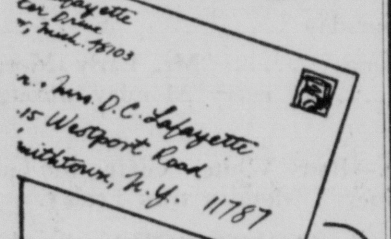 Lafayette
Drive
Mich. 48103
Mrs. D.C. Lafayette
15 Westport Road
Smithtown, N.Y. 11787